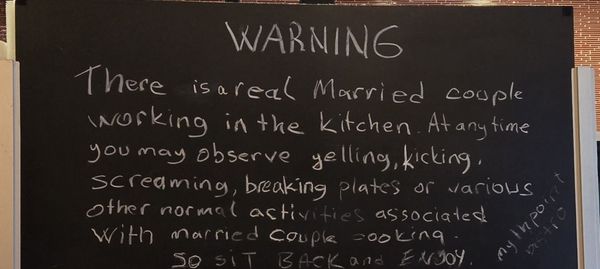 WARNING
There is a real Married couple
working in the kitchen. At any time
you may observe yelling, kicking,
screaming, breaking plates or various
other normal activities associated
with married couple cooking.
SO SIT BACK and ENJOY.